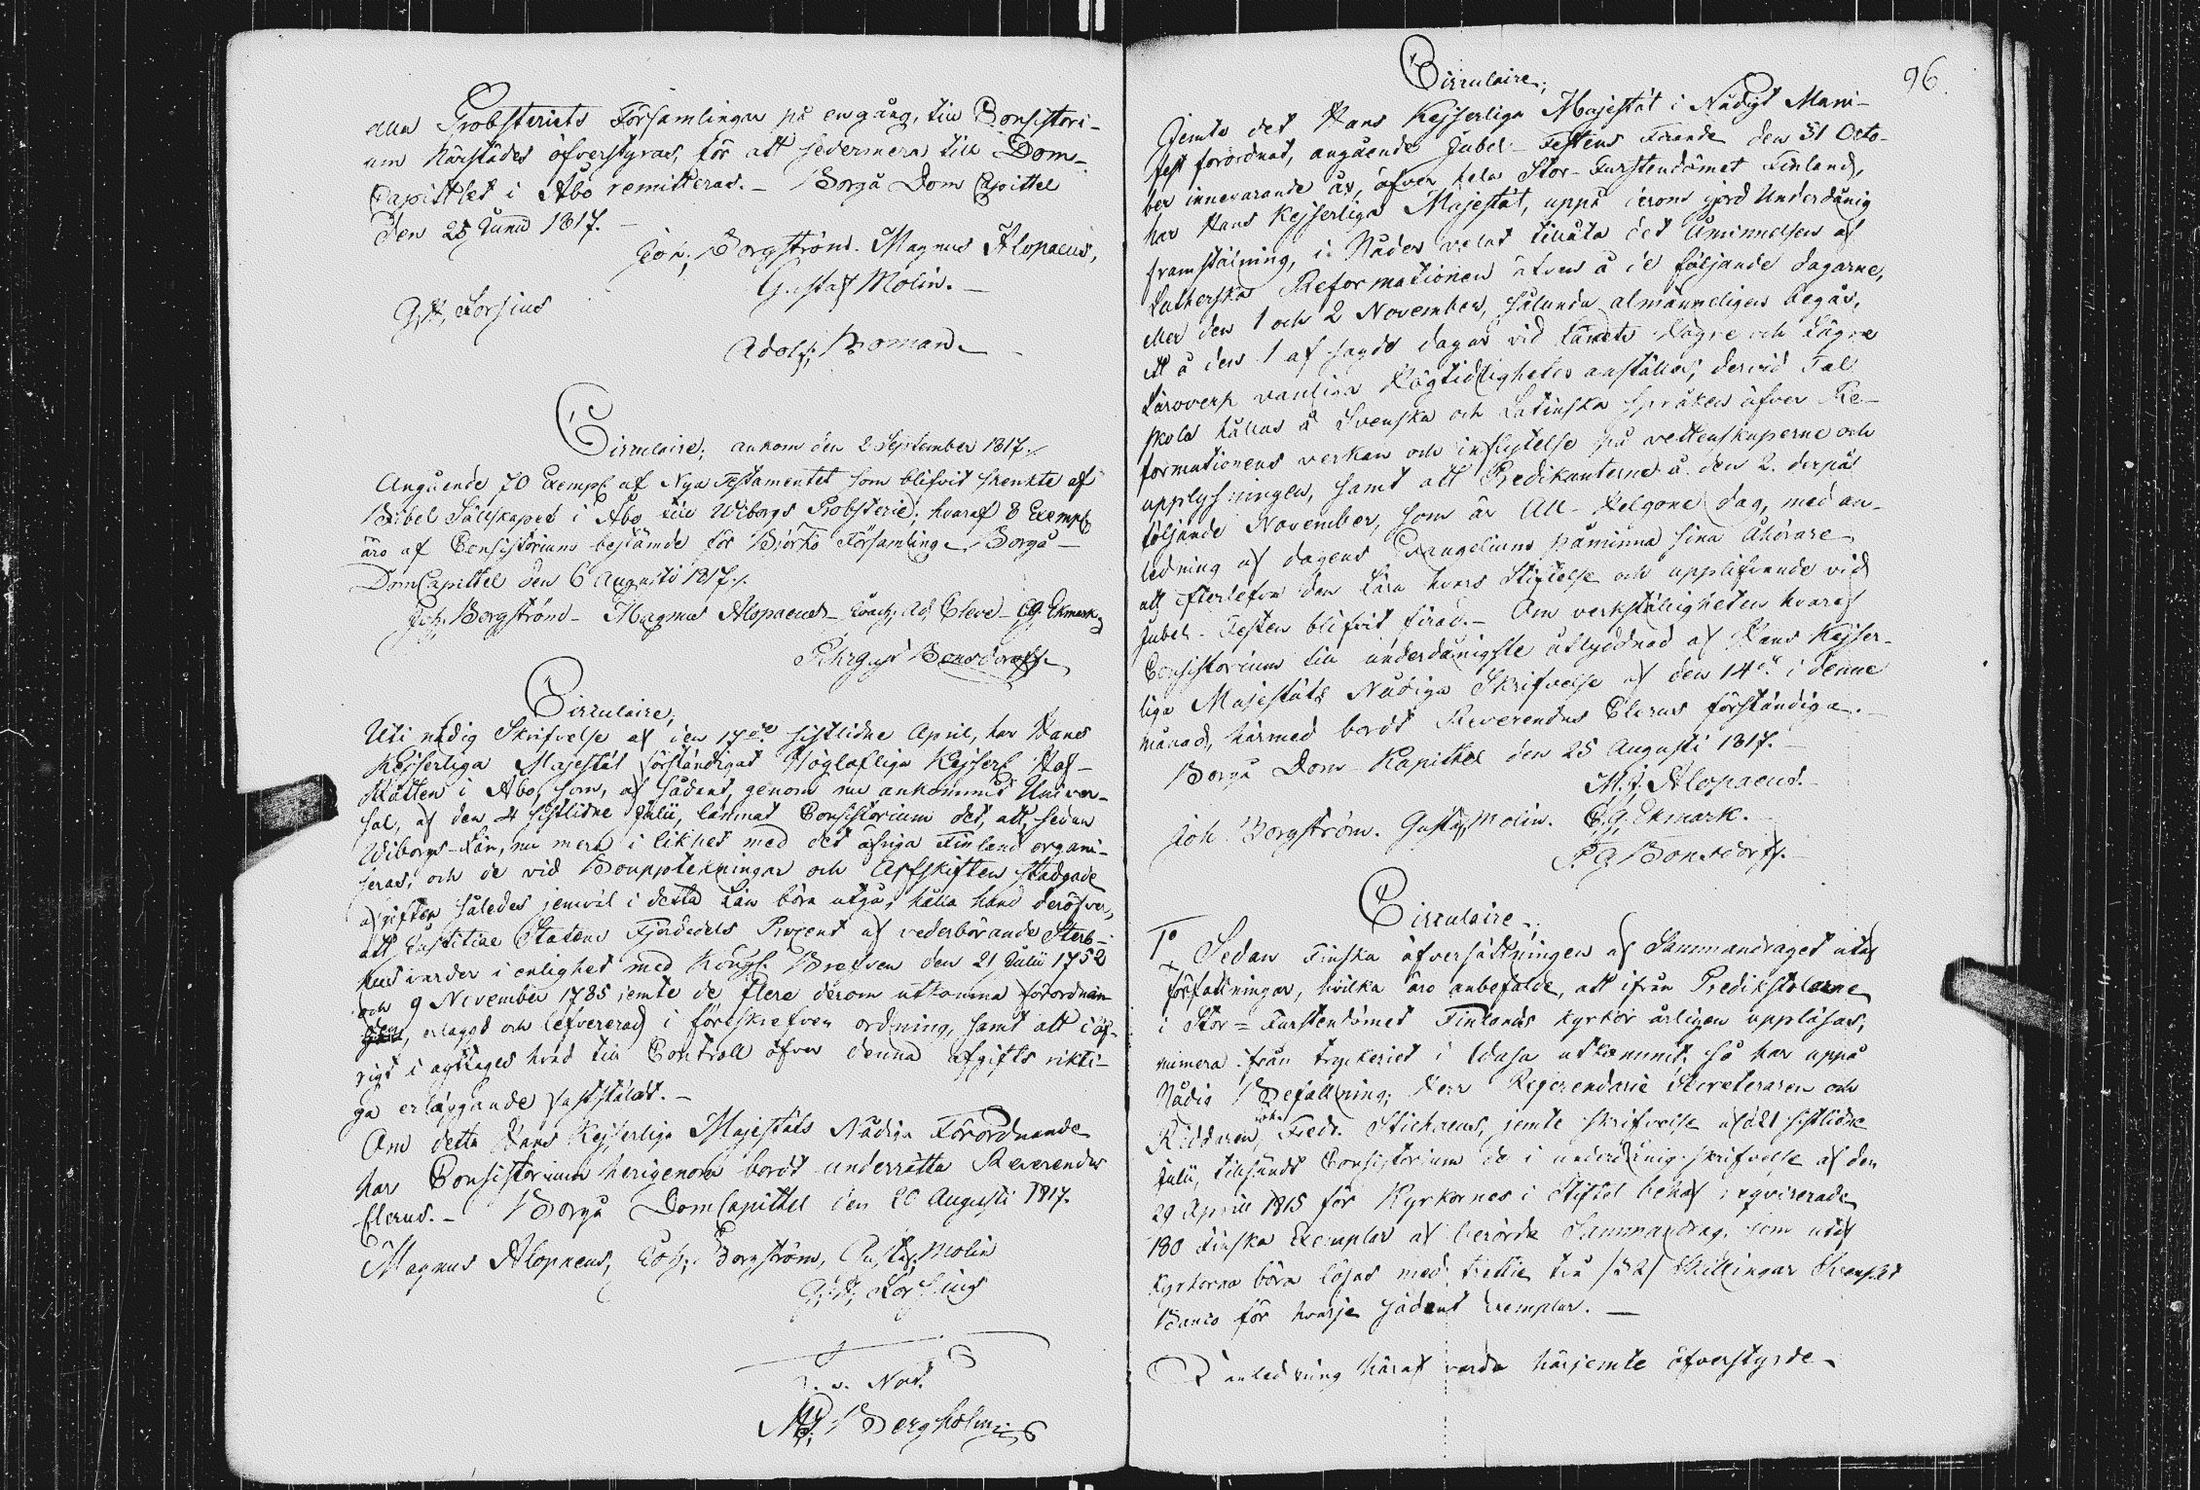 alla Probsteriets Församlingar på en gång, till Consistori-
um härstädes öfverstyras, för att sedermera till Dom-
Capitlet i Åbo remitteras. - Borgå Dom Capittel
den 25 Junii 1817. -
Joh; Borgström. Magnus Alopaeus,
Gustaf Molin. -
G, A, Forsius
Adolf; Boman.
Circulaire; ankom den 2 September 1817.
Angående 70 Exempl af Nya Testamentet som blifvit skenkte af
Bibel Sällskapet i Åbo till Wiborgs Probsterie; hvaraf 8 Exempl
äro af Consistorium bestämde för Björkö Församling. Borgå
Dom Capittel den 6 Augusti 1817.
Joh; Borgström - Magnus Alopaeus - Ad; Cleve - C.G. Ekmark
Pehr Gust Bonsdorff
Circulaire,
Uti nådig Skrifvelse af den 17de sistlidne April, har Hans
Kejserliga Majestät förständigat Höglofliga Kejserl Hof-
Rätten i Åbo, som, af sådant, genom nu ankommit Univer-
sal, af den 4 sistlidne Julii, lämnat Consistorium det, att, sedan
Wiborgs-Län, nu mera i likhet med det öfriga Finland organi-
seras, och de vid Bouppteckningar och Arfskiften stadgade
afgifter således jemväl i detta Län böra utgå, hålla hand deröfver,
att Justitiae Statens Fjerdedels Procent af vederbörande Sterb-
hus varder i enlighet med Kongl. Brefven den 21 Julii 1752
och 9 November 1785 jemte de flere derom utkomna förordnan
den, erlagd och lefvererad i föreskrefven ordning, samt att i öf-
rigt i agttages hvad till Controll öfver denna afgifts rikti-
ga erläggande faststäldt. -
Om detta Hans Kejserliga Majestäts Nådiga Förordnande
har Consistorium herigenom bordt underrätta Reverendus
Clerus. - Borgå Dom Capittel den 20 Augusti 1817.
Magnus Alopaeus, Joh; Borgström, Gustaf; Molin
G; A; Forsius
Not.
Bergholm
96.
Circulaire,
Jemte det Hans Kejserliga Majestät i Nådigt Mani-
fest förordnat, angående Jubel-Festens Firande den 31 Octo-
ber innevarande år, öfver hela Stor-Furstendömet Finland,
har Hans Kejserliga Majestät, uppå derom gjord Underdånig
framställning, i Nåder velat tillåta det Åminnelsen af
Lutherska Reformationen äfven å de följande dagarne,
eller den 1 och 2 November, sålunda almänneligen begås,
at å den 1 af sagde dagar vid Landets Högre och Lägre
Läroverk vanliga Högtidligheter anställas, dervid Tal
skola hållas å Svenska och Latinska språken öfver Re-
formationens verkan och inflytelse på vettenskaperne och
upplysningen, samt att Predikanterne å den 2. derpå
följande November, som är All-Helgone dag, med an-
ledning af dagens Evangelium påminna sina Åhörare
att efterlefva den Lära hvars Stiftelse och upplifvande vid
Jubel-Festen blifvit firad. - Om verkställigheten hvaraf
Consistorium till underdånigste åtlydnad af Hans Kejser-
liga Majestäts Nådiga Skrifvelse af den 14de i denne
månad, härmed bordt Reverendus Clerus förständiga. -
Borgå Dom Kapittel den 25 Augusti 1817. -
M. J. Alopaeus.
Joh Borgström. Gustaf Molin. C, G, Ekmark.
P. G Bonsdorff.
Circulaire,
1o Sedan Finska öfversättningen af Sammandraget utaf
författningar, hvilka äro anbefalde, att ifrån Predikstolarne
i Stor=Furstendömet Finlands kyrkor årligen uppläsas,
numera ifrån tryckeriet i Wasa utkommit, så har uppå
Nådig Befallning, Herr Referendarie Secreteraren och
Riddaren, Joh Fredr. Stichaeus, jemte skrifvelse af sistlidne
Julii, tillsändt Consistorium de i underdånig skrifvelse af den
29 April 1815 för Kyrkornes i Stiftet behof reqvirerade
180 Finska Exemplar af berörde Sammandrag, som utaf
kyrkorna böra lösas med trettio två /32/ Skillingar Svenskt
Banco för hvarje sådant Exemplar. -
I anledning häraf varda härjemte öfverstyrde